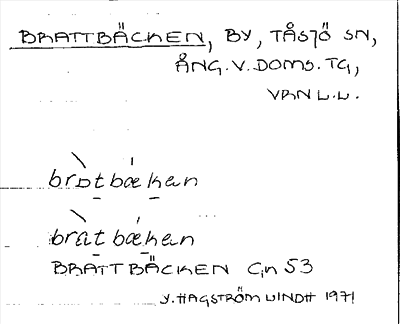 BRATTBÄCKEN, BY, TÅSJÖ SN,
ÅNG. V. DOMS. TG,
VRN L.L.
brɒ̀tbǽkan
bràtbǽkan
BRATTBÄCKEN Gn 53
Y. HAGSTRÖM LINDH 1971